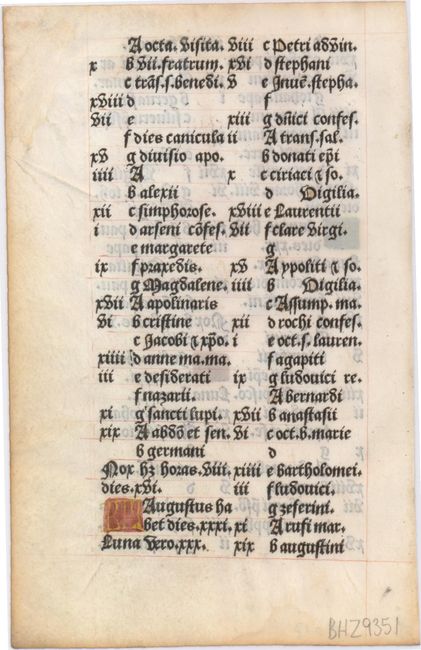 A octa. visita.
x b vii. fratrum.
c trās. s. benedi.
xviii d
vii e
f dies canicula
xv g diuisio apo.
iiii A
b alexii
xii c simphorose.
i d arseni cōfes.
e margarete
ix f praxedis.
g Magdalene.
xvii A apolinaris
vi b cristine
c Jacobi ⁊ xp̄o.
xiiii d anne ma. ma.
iii e desiderati
f nazarii.
xi g sancti lupi.
xix A abdō et sen.
b germani
Nox hꝫ horas. viii.
dies. xvi.
Augustus ha
bet dies. xxxi.
Luna vero. xxx.
viii c Petri ad vin.
xvi d stephani
v e Inuē. stepha.
f
xiii g dn̄ici confes.
ii A trans. sal.
b donati ep̄i
x c ciriaci ⁊ so.
d Vigilia.
xviii e Laurentii
vii f clare virgi.
g
xv A ypoliti ⁊ so.
iiii b Vigilia.
c Assump. ma.
xii d rochi confes.
i e oct. s. lauren.
f agapiti
ix g ludouici re.
A bernardi
xvii b anastasii
vi c oct. b. marie
d
xiiii e bartholomei.
iii f ludouici.
g zeferini.
xi A rufi mar.
xix b augustini
BHZ9351